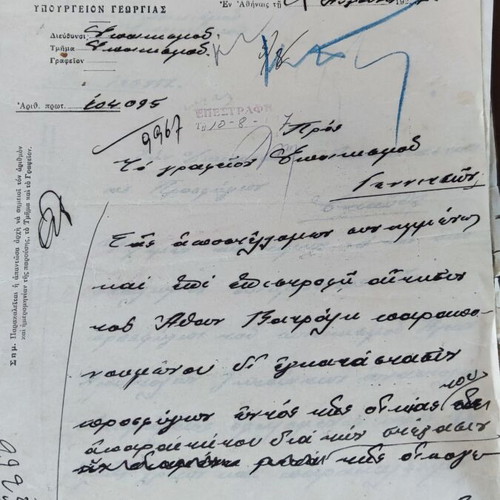 ΥΠΟΥΡΓΕΙΟΝ ΓΕΩΡΓΙΑΣ
Ἐν Ἀθήναις τῇ
Διεύθυνσις Ἐποικισμοῦ
Τμῆμα Ἐποικισμοῦ
Γραφεῖον
Ἀριθ. πρωτ. 104095
9967
ΕΠΕΣΤΡΑΦΗ
Τῇ 10-8-
Πρὸς
Τὸ γραφεῖον Ἐποικισμοῦ
Γιαννιτσῶν
Σᾶς ἀποστέλλομεν συνημμένως
καὶ ἐπὶ ἐπιστροφῇ αἴτησιν
τοῦ Ἀθαν. παραπο-
νουμένου δι' ἐγκατάστασιν
προσφύγων ἐντὸς τῆς οἰκίας του
ἀπαραιτήτου διὰ τὴν στέγασιν
τῆς οἰκογε
Σημ. Παρακαλεῖται ἡ ἀπαντῶσα ἀρχὴ νὰ σημειοῖ τὸν ἀριθμὸν
καὶ ἡμερομηνίαν τῆς παρούσης, τὸ Τμῆμα καὶ τὸ Γραφεῖον.